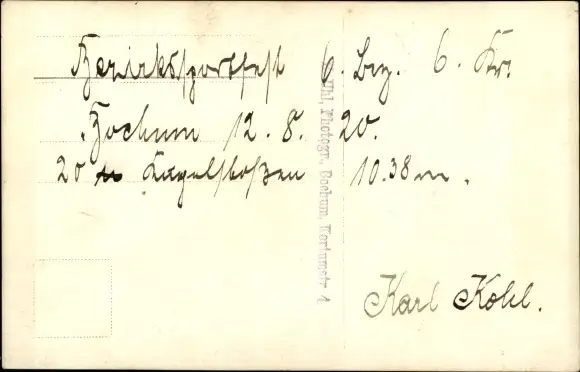 Bezirkssportfest 6. Bez. 6. Kr.
Bochum 12. 8. 20.
20 Kugelstoßen 10.38 m.
Uhl, Photogr., Bochum, Kortumstr. 4
Karl Kohl.